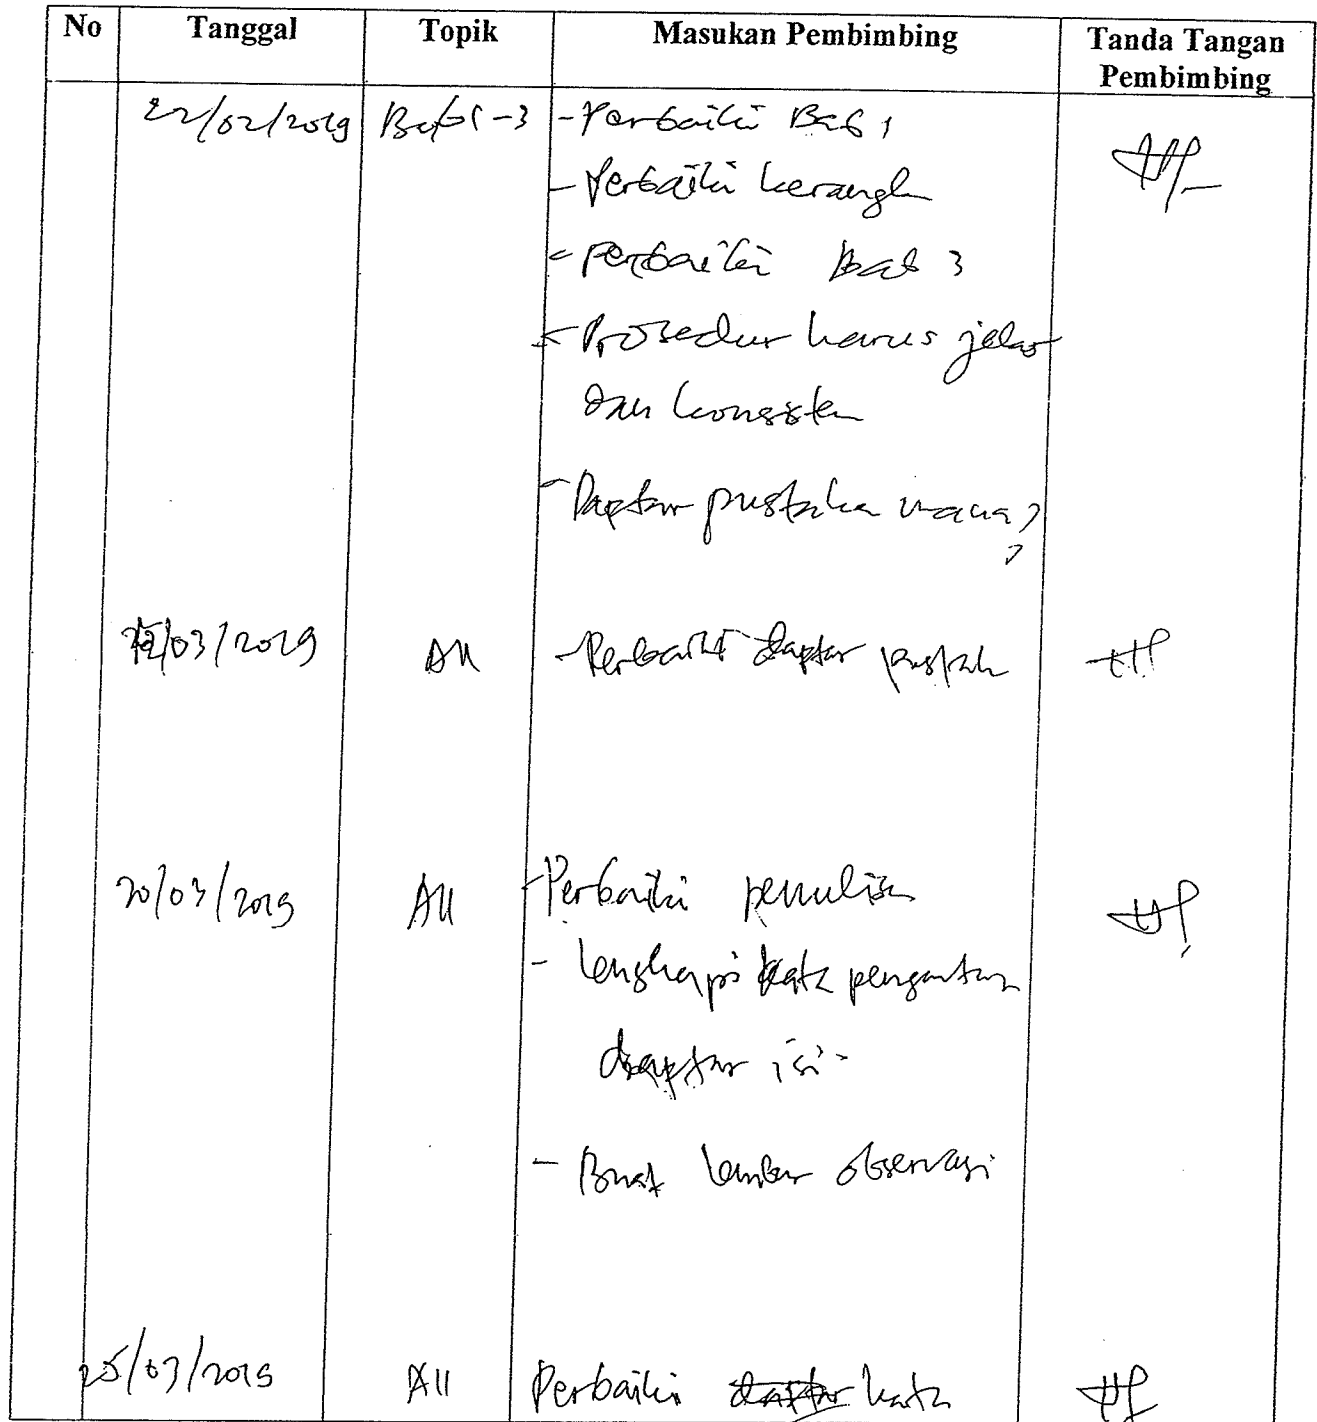 No Tanggal Topik Masukan Pembimbing Tanda Tangan
Pembimbing
22/02/2019 Bab 1-3 - Perbaiki Bab 1
- Perbaiki kerangka
- Perbaiki Bab 3
- Prosedur harus jelas
dan konsisten
- Daptar pustaka mana ?
/03/2019 All - Perbaiki daptar pustaka
20/03/2019 All - Perbaiki penulisan
- lengkapi kata pengantar
daptar isi -
- Buat lembar observasi
25/03/2019 All Perbaiki daftar kata